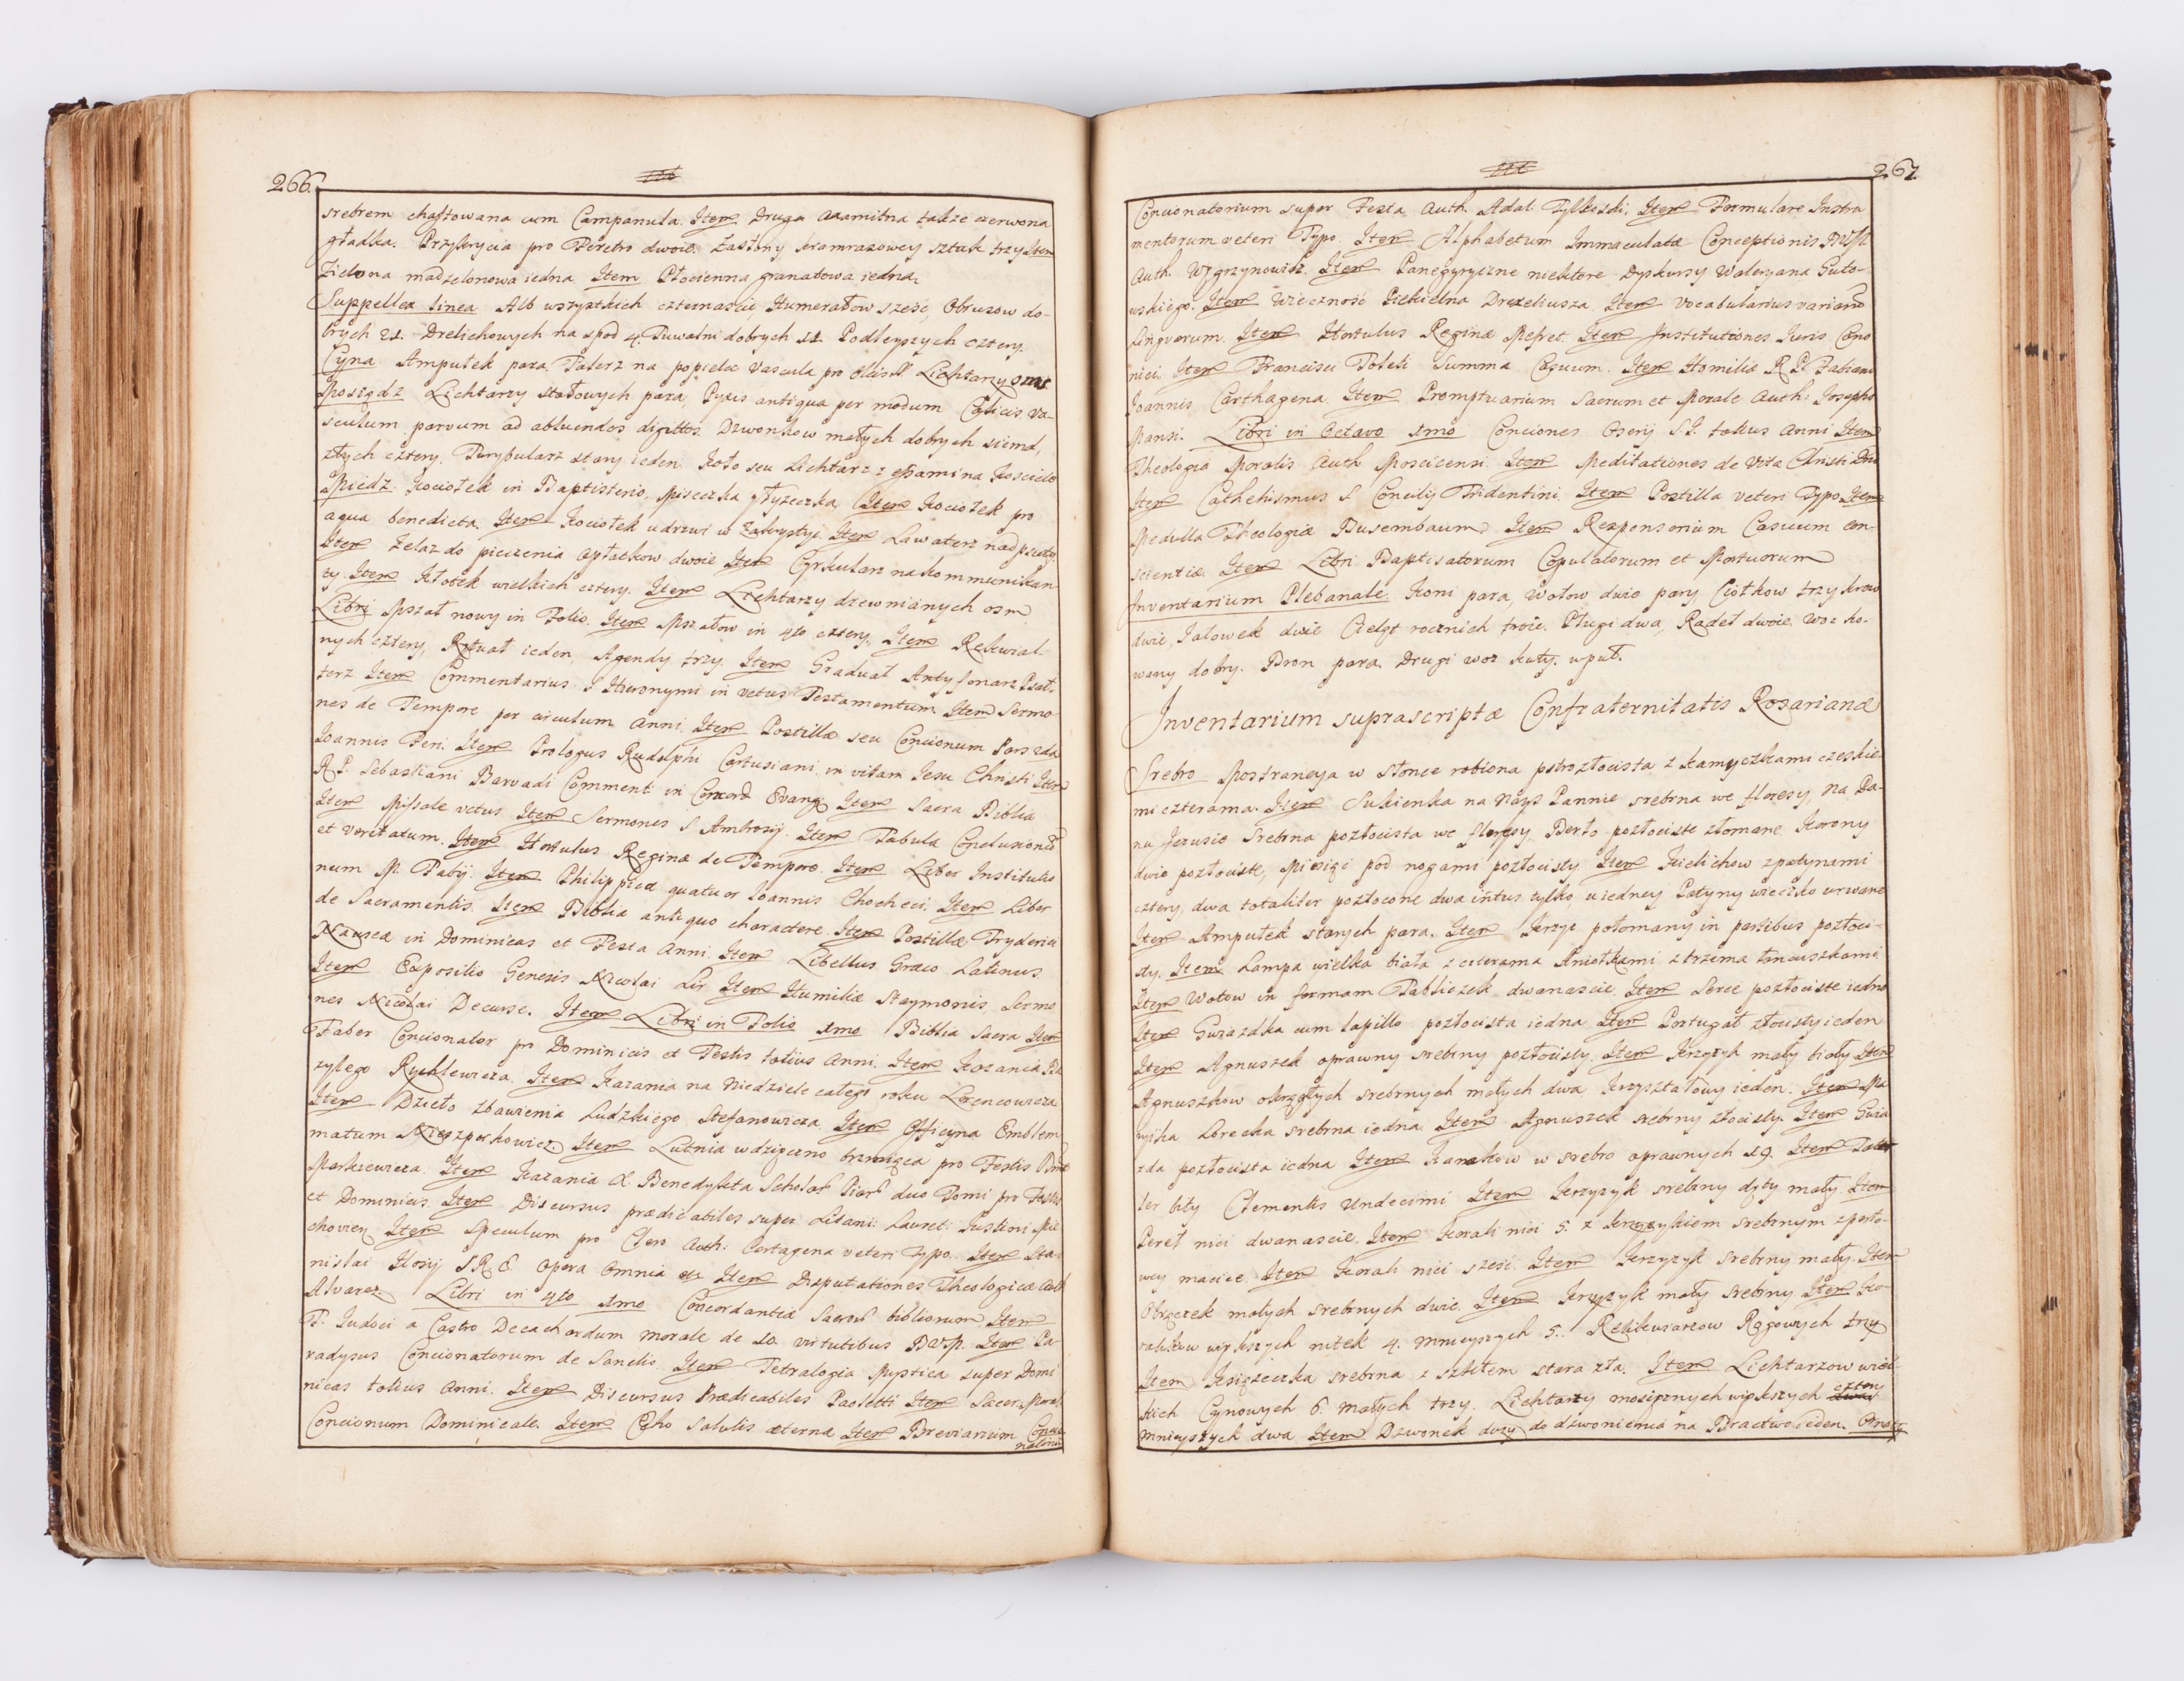 266.
srebrem chaftowana cum Campanula. Item Druga axamitna także czerwona
gładka. Przykrycia pro Feretro dwoie. Zasłony kramrasowey sztuk trzy Item
Zielona madzelonowa iedna Item Płocienna granatowa iedna.
Suppellex linea Alb wszystkich czternaście, Humerałow sześć, Obrusow do-
brych 21. Drelichowych na spod 4. Tuwalni dobrych 11. Podleyszych cztery.
Cyna Ampułek para, Talerz na popielec Vascula pro Oleis SS. Lichtarzy osm
Mosiądz Lichtarzy stołowych para, Pyxis antiqua per modum Calicis va-
sculum parvum ad abluendos digittos. Dzwonkow małych dobrych siedm,
złych cztery. Turybularz stary ieden. Koło seu Lichtarz z
Miedz Kociołek in Baptisterio, Miseczka y łyżeczka, Item Kociołek pro
aqua benedicta Item Kociołek u drzwi w Zakrystyi. Item Lawaterz
Item Zelaz do pieczenia opłatkow dwoie Item Cyrkularz na kommunikan
ty. Item Kłotek wielkich cztery. Item Lichtarzy drewnianych osm
Libri Mszał nowy in Folio. Item Mszałow in 4to cztery, Item Rekwial-
nych cztery, Rytuał ieden, Agendy trzy. Item Graduał Antyfonarz Psał-
terz Item Commentarius S Hieronymi in vetus Testamentum Item Sermo-
nes de Tempore per circulum Anni Item Postillæ seu Concionum Pars 2da
Ioannis Feri. Item Prologus Rudolphi Cartusiani in vitam Iesu Christi Item
R.P. Sebastiani Baradi Comment: in Concord Evang: Item Sacra Biblia
Item Missale vetus Item Sermones S Ambrosij. Item Tabula Conclusionũ
et Veritatum. Item Hortulus Reginæ de Tempore. Item Liber Institutio
num M. Fabij. Item Philippicæ quatuor Ioannis Chocheci. Item Liber
de Sacramentis. Item Biblia antiquo charactere Item Postillæ Fryderici
Nauseæ in Dominicas et Festa Anni. Item Libellus Græco Latinus.
Item Expositio Genesis Nicolai Lir Item Humiliæ Haymonis Sermo
nes Nicolai Decurse. Item Libri in Folio 1mo Biblia Sacra Item
Faber Concionator pro Dominicis et Festis totius Anni. Item Kazania
zylego Rychlewicza. Item Kazania na Niedziele całego roku Lorencowicza
Item Dzieło Zbawienia Ludzkiego Stefanowicza Item Officyna Emblem
matum Nieszporkowicz Item Lutnia wdzięczno brzmiąca pro Festis
Markiewicza. Item Kazania X. Benedykta Scholar: Piar: duo Tomi pro Festis
et Dominicis Item Discursus prædicabiles super Litani: Lauret: Iustini Mie
choviey Item Speculum pro Clero Auth: Cartagena veteri typo. Item Sta-
nislai Hosij S.R.E. Opera Omnia etc Item Disputationes Theologicæ Auth
Alvarez. Libri in 4to 1mo Concordantiæ Sacror: bibliorum Item
P. Iudoci a Castro Decachordum morale de 10. virtutibus B.V.M. Item Pa-
radysus Concionatorum de Sanctis. Item Tetralogia Mystica super Domi
nicas totius Anni. Item Discursus Prædicabiles Paoletti Item Sacer: Moral:
Concionum Dominicale. Item Echo Salutis æternæ Item Breviarium Concio
natoriu
267
Concionatorium super Festa Auth: Adal: Tylkoski. Item Formulare Instru
mentorum veteri Typo. Item Alphabetum Immaculatæ Conceptionis BVM
Auth. Węgrzynowicz. Item Panegyryczne niektore Dyskursy Waleryana Guto-
wskiego. Item Wieczność Piekielna Drexeliusza Item Vocabularius variarũ
Lingvarum. Item Hortulus Reginæ Mefret. Item Institutiones Iuris Cano
nici Item Francisci Toleti Summa Casuum. Item Homiliæ R.P. Fabiani
Ioannis Carthagena. Item Promptuarium Sacrum et Morale Auth: Iosepho
Mansi. Libri in Octavo 1mo Conciones Oserij S.I. totius Anni Item
Theologia Moralis Auth Moscicensi. Item Meditationes de Vita Christi Dni
Item Cathehismus S Concilij Tridentini. Item Postilla veteri Typo Item
Medulla Theologiæ Busembaum. Item Responsorium Casuum con-
scientiæ. Item Libri Baptisatorum Copulatorum et Mortuorum
Inventarium Plebanale. Koni para, Wołow dwie pary, Ciołkow trzy krow
dwie, Jałowek dwie Cieląt rocznich troie. Pługi dwa, Radeł dwoie. Woz ko-
wany dobry. Bron para. Drugi woz kuty. w puł.
Inventarium suprascriptæ Confraternitatis Rosarianæ
Srebro Monstrancya w słonce robiona pstrozłocista z kamyczkami czeskie-
mi czterama. Item Sukienka na Nayś Pannie srebrna we floresy, Na Pa-
nu Jezusie srebrna pozłocista we floresy. Berło pozłociste złomane Korony
dwie pozłociste, Miesiąc pod nogami pozłocisty. Item Kielichow z patynami
cztery, dwa totaliter pozłocone dwa intus tylko, u iedney Patyny wieczko urwane
Item Ampułek starych para. Item Krzyż połomany in partibus pozłoci-
sty. Item Lampa wielka biała z czterama Aniołkami z trzema łancuszkami
Item Wotow in formam Tabliczek dwanascie. Item Serce pozłociste iedno
Item Gwiazdka cum lapillo pozłocista iedna Item Portugał złocisty ieden
Item Agnuszek oprawny srebrny pozłocisty. Item Krzyżyk mały biały Item
Agnuszkow okrągłych srebrnych małych dwa Krzyształowy ieden. Item Ma
ryika Loretka srebrna iedna. Item Agnuszek srebrny złocisty. Item Gwia
zda pozłocista iedna Item Kanakow w srebro oprawnych 19. Item
ler bity Clementis Undecimi Item Krzyżyk srebrny dęty mały. Item
Pereł nici dwanascie. Item Korali nici 5. z krzyżykiem srebrnym z perło-
wey macice. Item Korali nici sześć. Item Krzyżyk srebrny mały. Item
Obrączek małych srebrnych dwie. Item Krzyżyk mały srebrny Item Ko-
ralikow większych nitek 4. mnieyszych 5. Relikwiarzow Rągowych trzy
Item Książeczka srebrna z szkłem stara zła. Item Lichtarzow wiel-
kich Cynowych 6. małych trzy. Lichtarzy mosiężnych większych cztery
mnieyszych dwa Item Dzwonek duży do dzwonienia na Bractwo ieden. Ornaty